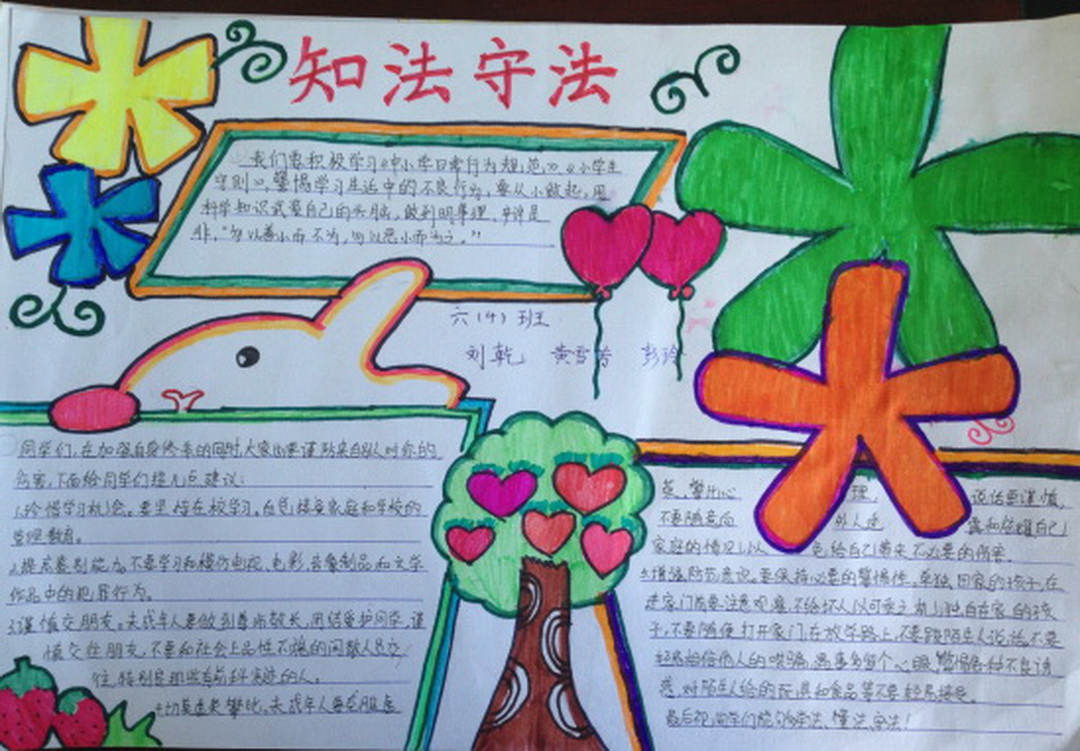 知法守法
我们要积极学习《中小学日常行为规范》《小学生
守则》，警惕学习生活中的不良行为，要从小做起，用
科学知识武装自己的头脑，做到明事理，辨是
非，“勿以善小而不为，勿以恶小而为之。”
六（4）班
刘乾 黄雪芳 彭玲
同学们，在加强自身修养的同时，大家也要谨防来自别人对你的
伤害，下面给同学们提几点建议：
1.珍惜学习机会。要坚持在校学习，自觉接受家庭和学校的
监理教育。
2.提高鉴别能力，不要学习和模仿电视、电影、音像制品和文学
作品中的犯罪行为。
3.谨慎交朋友。未成年人要做到尊师敬长，团结爱护同学，谨
慎交往朋友，不要和社会上品性不端的闲散人员交
往，特别是那些有前科劣迹的人。
4.切莫追美攀比。未成年人要克服虚
荣、攀比心 理，说话要谨慎，
不要随意向 外人透 露和炫耀自己
家庭的情况，以 免给自己带来不必要的伤害。
5.增强防范意识。要保持必要的警惕性。单独回家的孩子，在
进家门前要注意观察，不给坏人以可乘之机；独自在家的孩
子，不要随便打开家门，在放学路上，不要跟陌生人说话，不要
轻易相信他人的哄骗，遇事多留个心眼，警惕各种不良诱
惑，对陌生人给的玩具和食品等不要轻易接受。
最后祝同学们能够学法、懂法、守法！